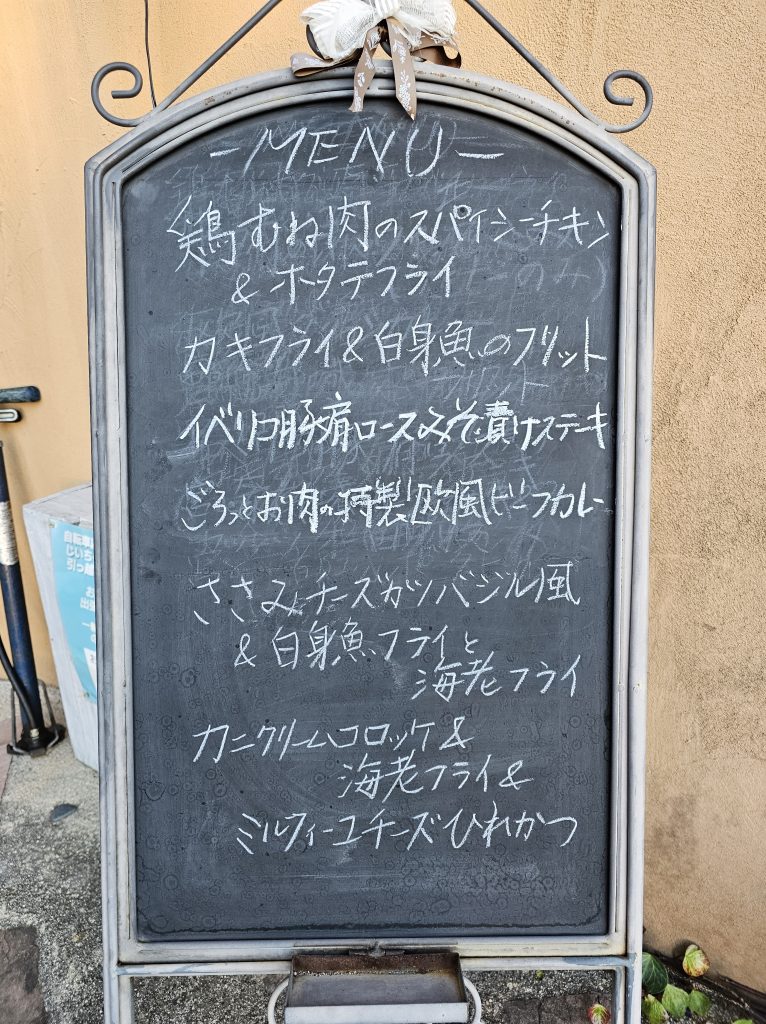 -MENU-
鶏むね肉のスパイシーチキン
& ホタテフライ
カキフライ&白身魚のフリット
イベリコ豚肩ロースみそ漬けステーキ
ごろっとお肉の特製欧風ビーフカレー
ささみチーズカツバジル風
&白身魚フライと
海老フライ
カニクリームコロッケ&
海老フライ&
ミルフィーユチーズひれかつ
自転車
じいち
引っ越